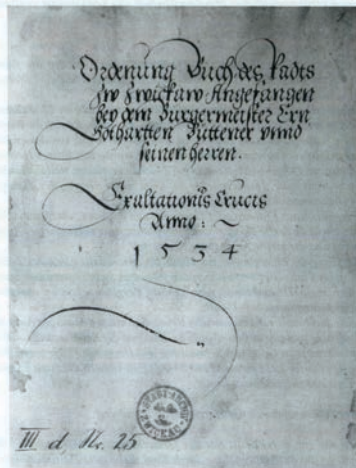 Ordenung Buch des Radts
zw Zwickaw Angefangen
bey dem Burgermeister Ern
Gothartten Büttener vnnd
seinen herren.
Exultationis Crucis
Anno:
1534
STADTARCHIV
ZWICKAU
III d, Nr. 25